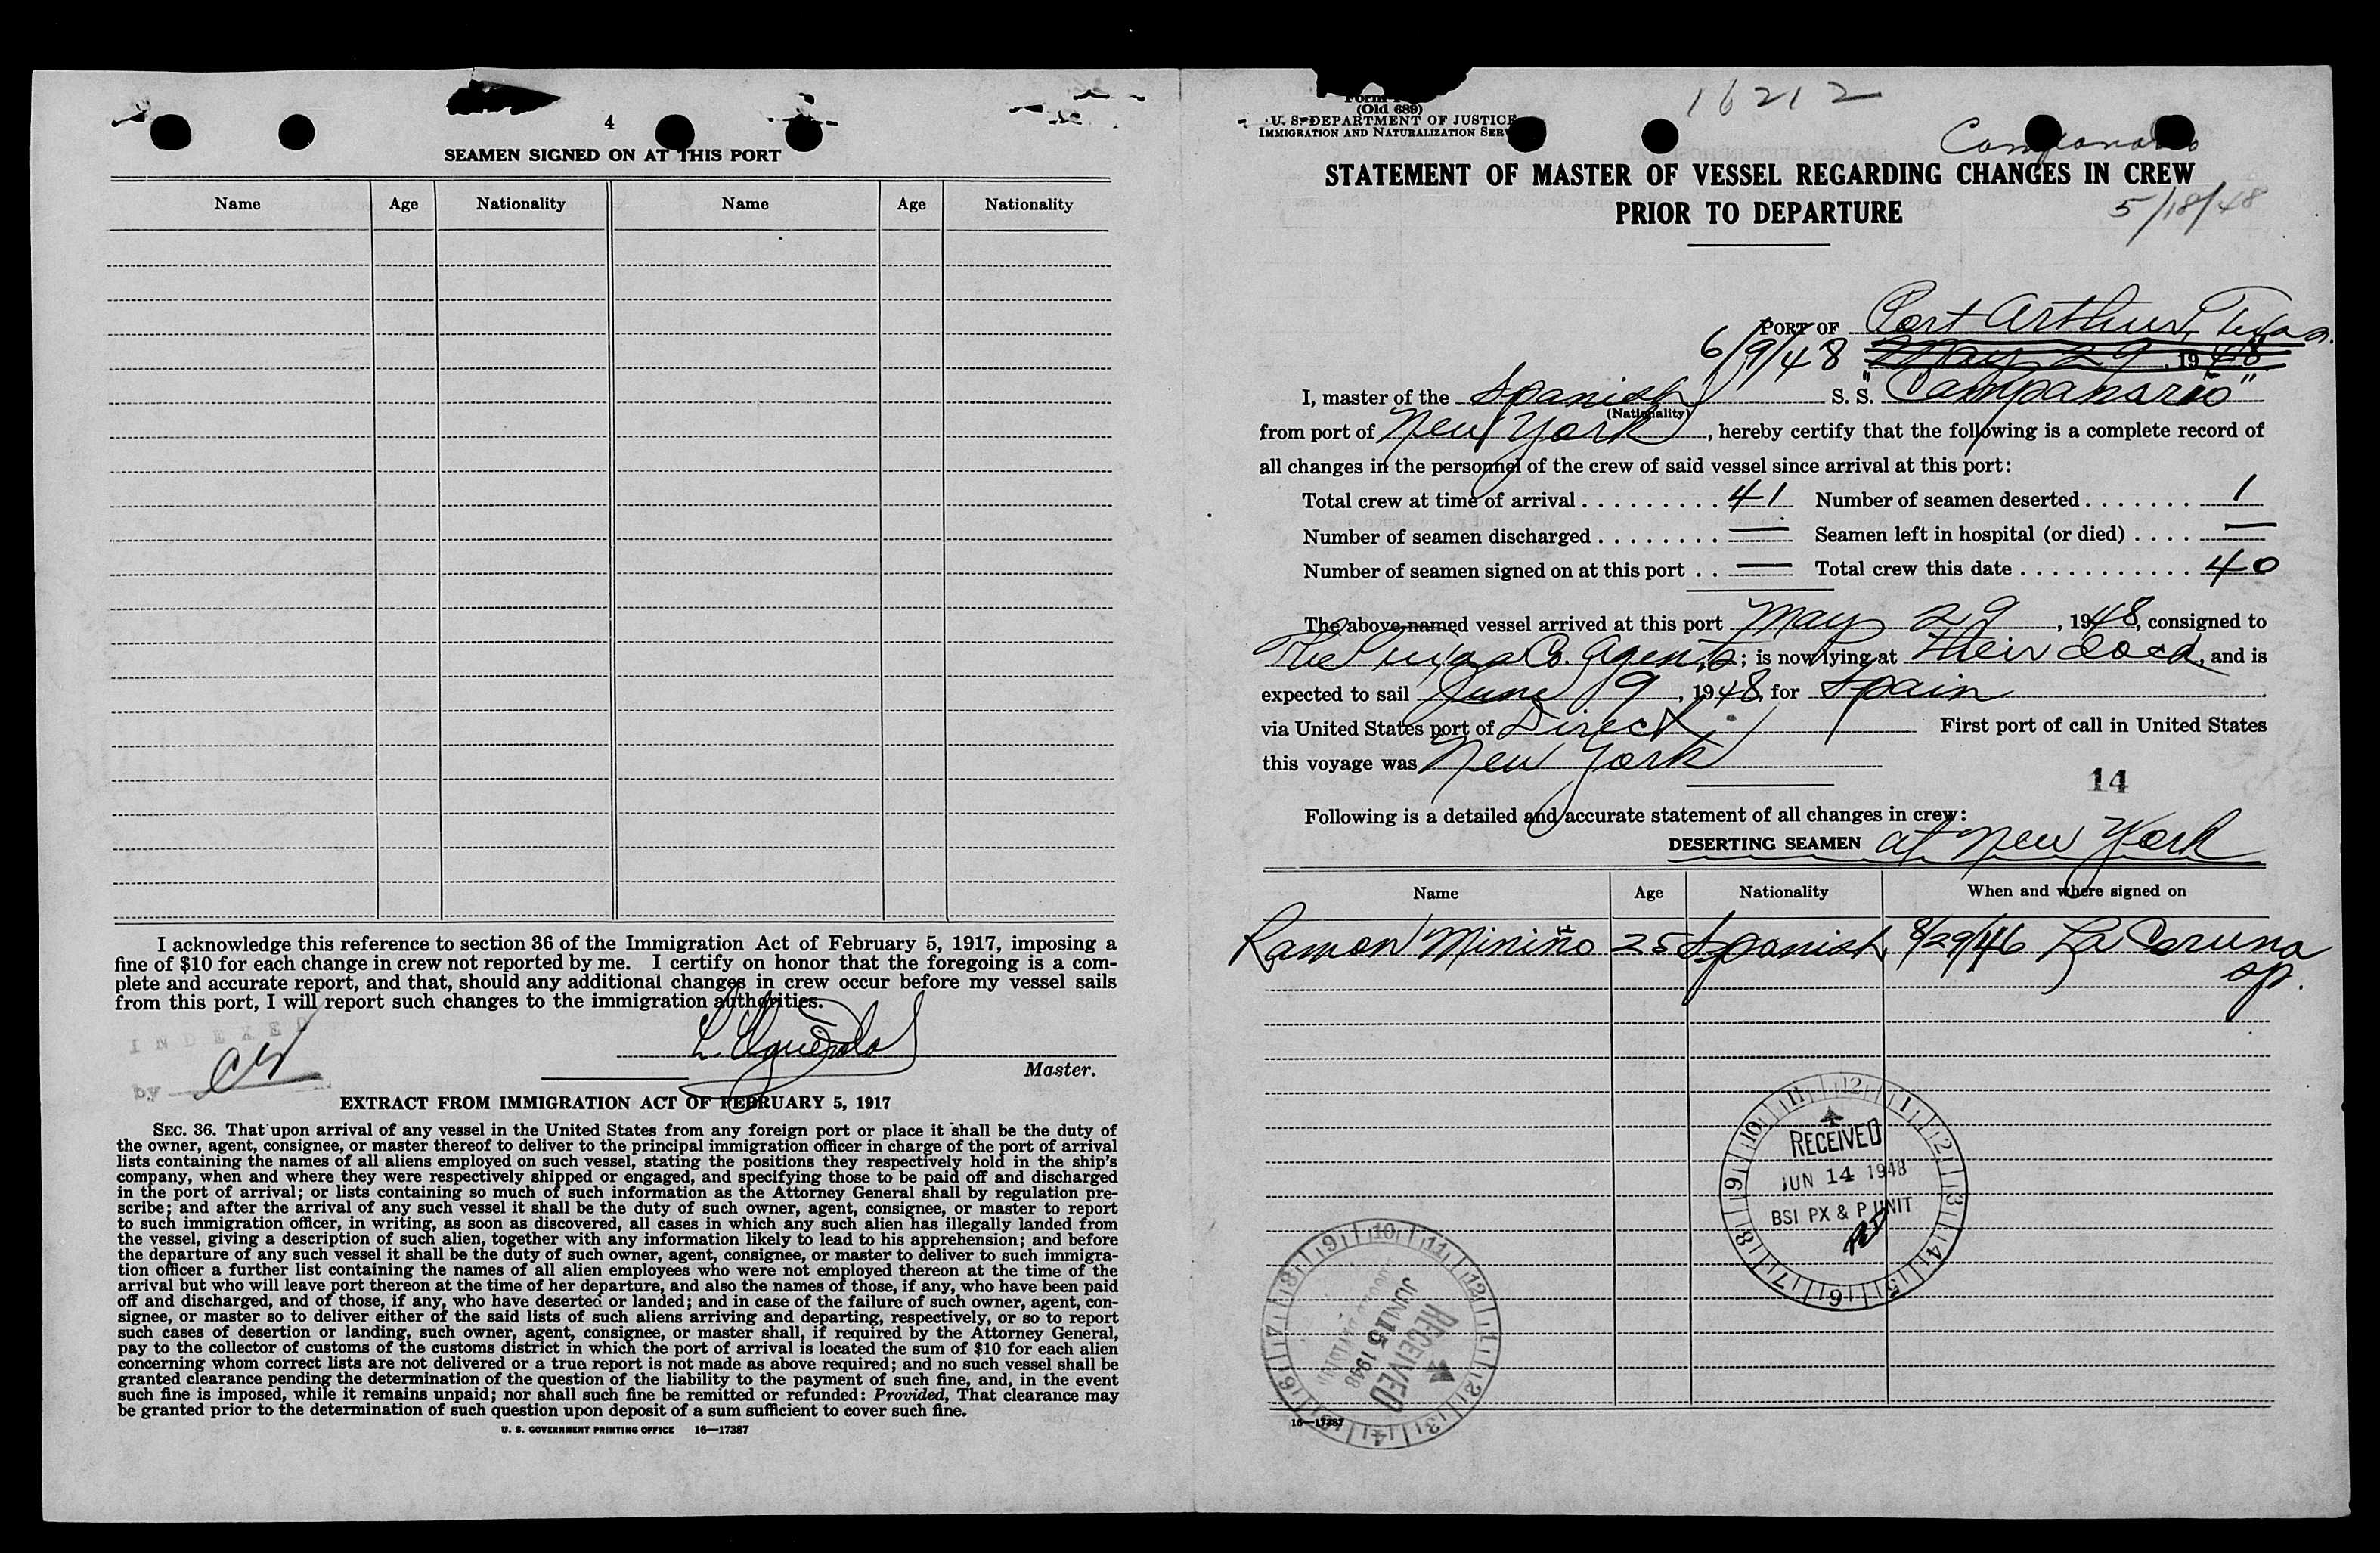 4
SEAMEN SIGNED ON AT THIS PORT
Name Age Nationality Name Age Nationality
I acknowledge this reference to section 36 of the Immigration Act of February 5, 1917, imposing a
fine of $10 for each change in crew not reported by me. I certify on honor that the foregoing is a com-
plete and accurate report, and that, should any additional changes in crew occur before my vessel sails
from this port, I will report such changes to the immigration authorities.
INDEXED
by
Master.
EXTRACT FROM IMMIGRATION ACT OF FEBRUARY 5, 1917
SEC. 36. That upon arrival of any vessel in the United States from any foreign port or place it shall be the duty of
the owner, agent, consignee, or master thereof to deliver to the principal immigration officer in charge of the port of arrival
lists containing the names of all aliens employed on such vessel, stating the positions they respectively hold in the ship's
company, when and where they were respectively shipped or engaged, and specifying those to be paid off and discharged
in the port of arrival; or lists containing so much of such information as the Attorney General shall by regulation pre-
scribe; and after the arrival of any such vessel it shall be the duty of such owner, agent, consignee, or master to report
to such immigration officer, in writing, as soon as discovered, all cases in which any such alien has illegally landed from
the vessel, giving a description of such alien, together with any information likely to lead to his apprehension; and before
the departure of any such vessel it shall be the duty of such owner, agent, consignee, or master to deliver to such immigra-
tion officer a further list containing the names of all alien employees who were not employed thereon at the time of the
arrival but who will leave port thereon at the time of her departure, and also the names of those, if any, who have been paid
off and discharged, and of those, if any, who have deserted or landed; and in case of the failure of such owner, agent, con-
signee, or master so to deliver either of the said lists of such aliens arriving and departing, respectively, or so to report
such cases of desertion or landing, such owner, agent, consignee, or master shall, if required by the Attorney General,
pay to the collector of customs of the customs district in which the port of arrival is located the sum of $10 for each alien
concerning whom correct lists are not delivered or a true report is not made as above required; and no such vessel shall be
granted clearance pending the determination of the question of the liability to the payment of such fine, and, in the event
such fine is imposed, while it remains unpaid; nor shall such fine be remitted or refunded: Provided, That clearance may
be granted prior to the determination of such question upon deposit of a sum sufficient to cover such fine.
U. S. GOVERNMENT PRINTING OFFICE 16—17387
Form
(Old 689)
U. S. DEPARTMENT OF JUSTICE
IMMIGRATION AND NATURALIZATION SERV
16212
Campanario
STATEMENT OF MASTER OF VESSEL REGARDING CHANGES IN CREW
PRIOR TO DEPARTURE
5/18/48
PORT OF Port Arthur, Texas.
6/9/48 May 29, 1948
I, master of the Spanish S. S. "Campanario"
(Nationality)
from port of New York, hereby certify that the following is a complete record of
all changes in the personnel of the crew of said vessel since arrival at this port:
Total crew at time of arrival 41 Number of seamen deserted 1
Number of seamen discharged — Seamen left in hospital (or died) —
Number of seamen signed on at this port — Total crew this date 40
The above-named vessel arrived at this port May 29, 1948, consigned to
The Texas Co. Agents; is now lying at their dock, and is
expected to sail June 9, 1948, for Spain
via United States port of Direct First port of call in United States
this voyage was New York
14
Following is a detailed and accurate statement of all changes in crew:
DESERTING SEAMEN at New York
Name Age Nationality When and where signed on
Ramon Miniño 25 Spanish 8/29/46 La Coruna
Sp.
12 1 2 3 4 5 6 7 8 9 10 11
RECEIVED
JUN 14 1948
BSI PX & P UNIT
10 11 12 1 2 3 4 5 6 7 8 9
RECEIVED
JUN 15 1948
16—17387